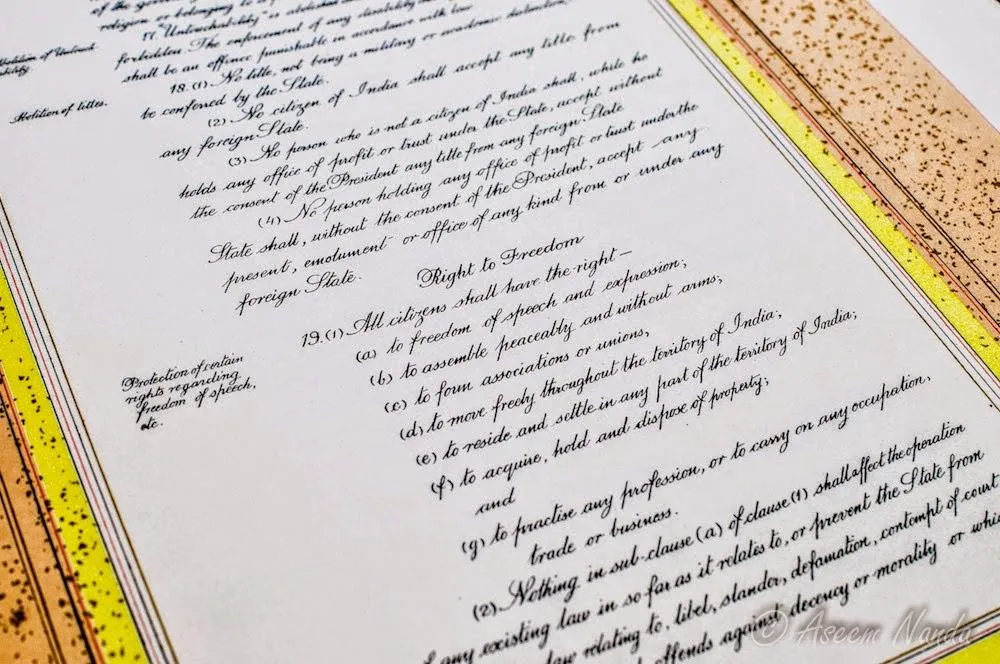 of the
religion or belonging to a
Abolition of Untouch
ability.
17. "Untouchability" is abolished
forbidden. The enforcement of any disability
shall be an offence punishable in accordance with law.
Abolition of titles.
18. (1) No title, not being a military or academic distinction,
be conferred by the State.
(2) No citizen of India shall accept any title from
any foreign State.
(3) No person who is not a citizen of India shall, while he
holds any office of profit or trust under the State, accept without
the consent of the President any title from any foreign State
(4) No person holding any office of profit or trust under the
State shall, without the consent of the President, accept any
present, emolument or office of any kind from or under any
foreign State.
Right to Freedom
Protection of certain
rights regarding
freedom of speech,
etc.
19. (1) All citizens shall have the right —
(a) to freedom of speech and expression;
(b) to assemble peaceably and without arms;
(c) to form associations or unions;
(d) to move freely throughout the territory of India;
(e) to reside and settle in any part of the territory of India;
(f) to acquire, hold and dispose of property;
and
(g) to practise any profession, or to carry on any occupation,
trade or business.
(2) Nothing in sub-clause (a) of clause (1) shall affect the operation
of any existing law in so far as it relates to, or prevent the State from
law relating to, libel, slander, defamation, contempt of court
offends against decency or morality or
© Aseem Nanda